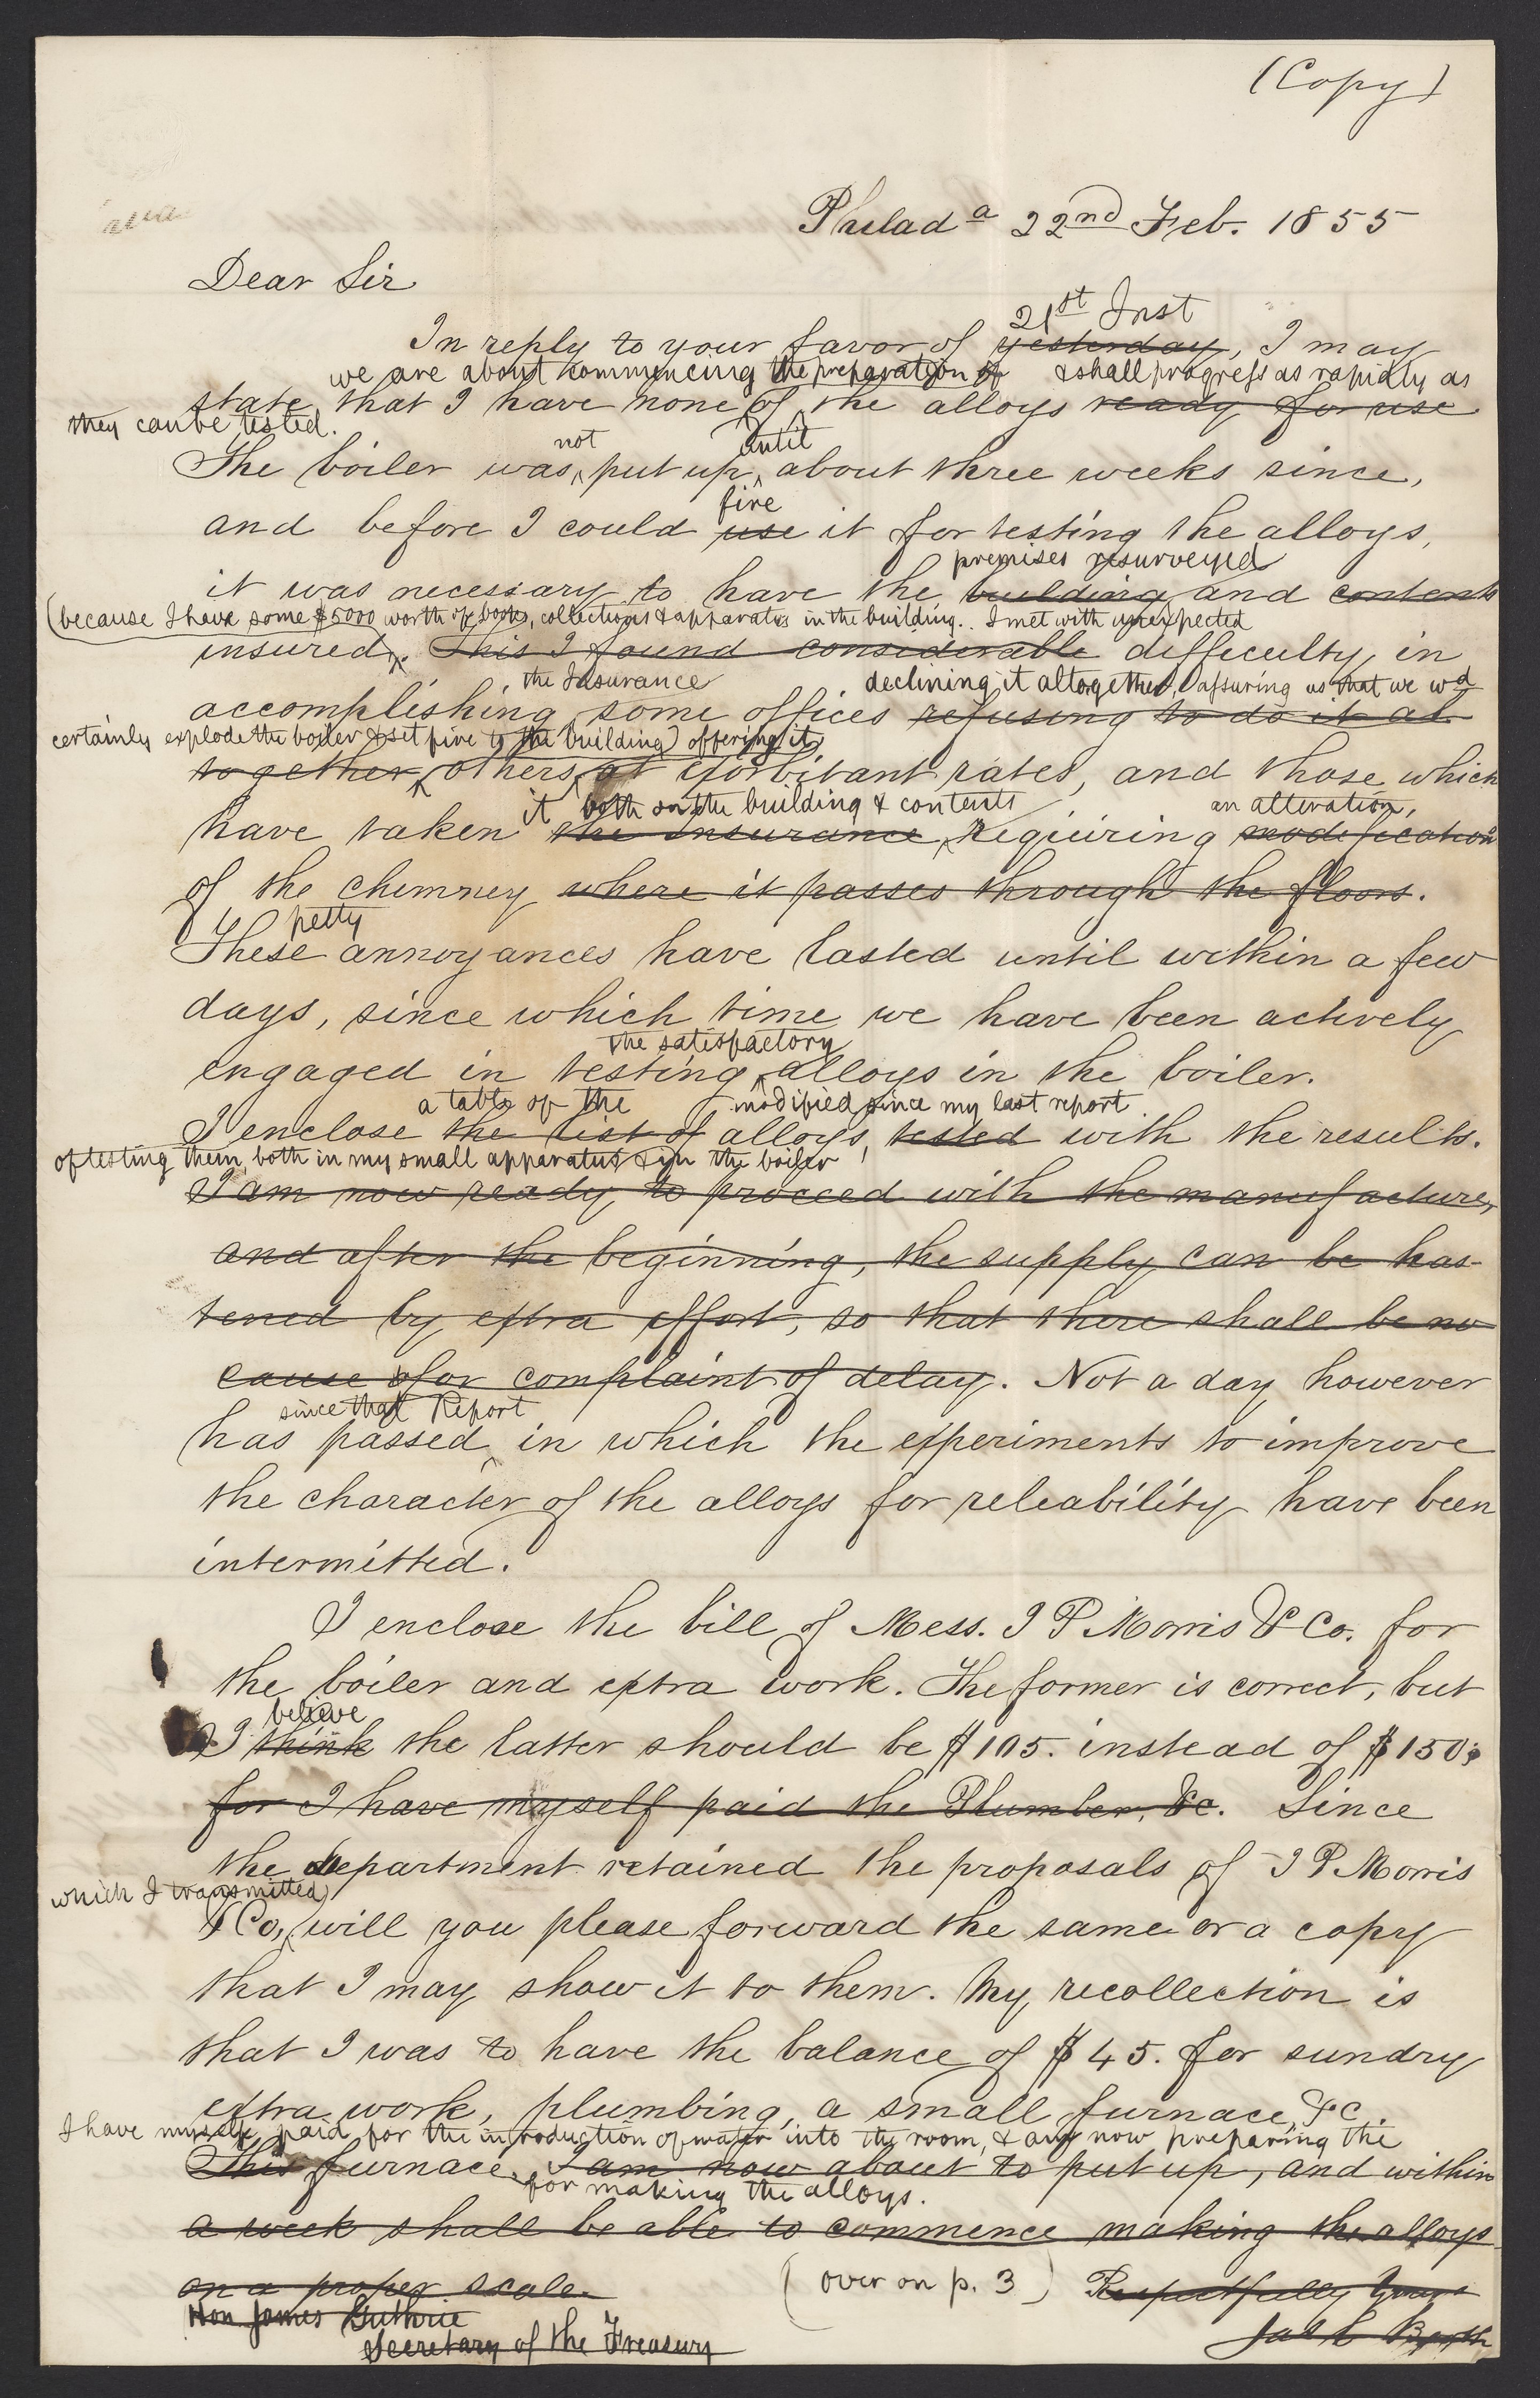 (Copy)
Philada 22nd Feb. 1855
Dear Sir
21st Inst
In reply to your favor of yesterday, I may
we are about commencing the preparation of & shall progress as rapidly as
state that I have none of the alloys ready for use
they can be tested.
not until
The boiler was put up about three weeks since,
fire
and before I could use it for testing the alloys,
premises resurveyed
it was necessary to have the building and contents
(because I have some $5000 worth of books, collections & apparatus in the building. I met with unexpected
insured. This I found considerable difficulty in
the Insurance declining it altogether, (assuring us that we wd
accomplishing some offices refusing to do it al-
certainly explode the boiler & set fire to the building) offering it
together, others at exorbitant rates, and those which
it both on the building & contents an alteration,
have taken the Insurance, requiring modification
of the chimney where it passes through the floors.
petty
These annoyances have lasted until within a few
days, since which time we have been actively
the satisfactory
engaged in testing alloys in the boiler.
a table of the modified since my last report
I enclose the list of alloys, tested with the results.
of testing them both in my small apparatus & in the boiler
I am now ready to proceed with the manufacture,
and after the beginning, the supply can be has-
tened by extra effort, so that there shall be no
cause for complaint of delay. Not a day however
since that Report
has passed in which the experiments to improve
the character of the alloys for reliability have been
intermitted.
I enclose the bill of Mess. I P Morris & Co. for
the boiler and extra work. The former is correct, but
believe
I think the latter should be $105. instead of $150;
for I have myself paid the Plumber, &c. Since
the department retained the proposals of I P Morris
which I transmitted
& Co, will you please forward the same or a copy
that I may show it to them. My recollection is
that I was to have the balance of $45. for sundry
extra work, plumbing, a small furnace, &c.
I have myself paid for the introduction of water into the room, & am now preparing the
This furnace. I am now about to put up, and within
for making the alloys.
a week shall be able to commence making the alloys
on a proper scale.
(over on p. 3) Respectfully Yours
Hon James Guthrie
Secretary of the Treasury